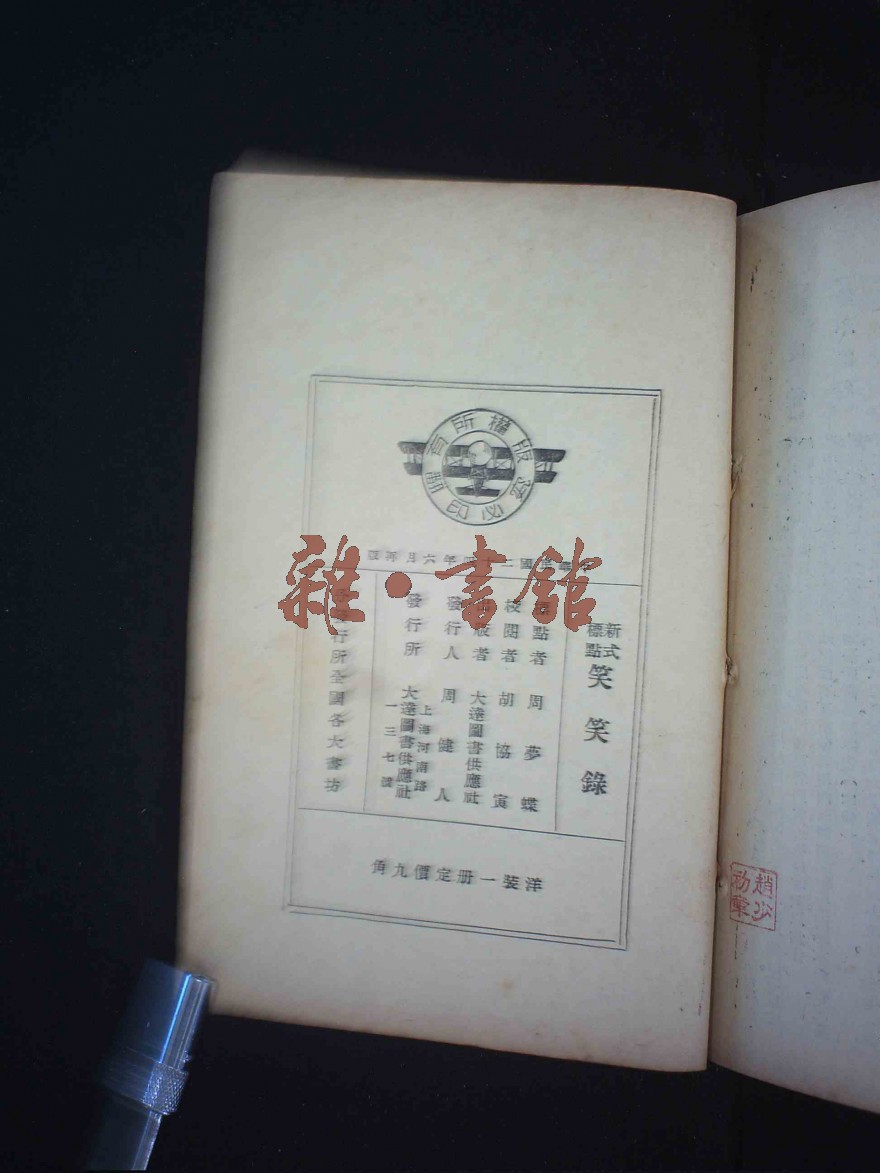 版權所有
翻印必究
年六月再版
新式
標點
笑笑錄
點者 周夢蝶
校閱者 胡協寅
出版者 大達圖書供應社
發行人 周健人
發行所 大達圖書供應社
上海河南路
一三七號
發行所全國各大書坊
洋裝一册定價九角
雜·書館
趙少
初章